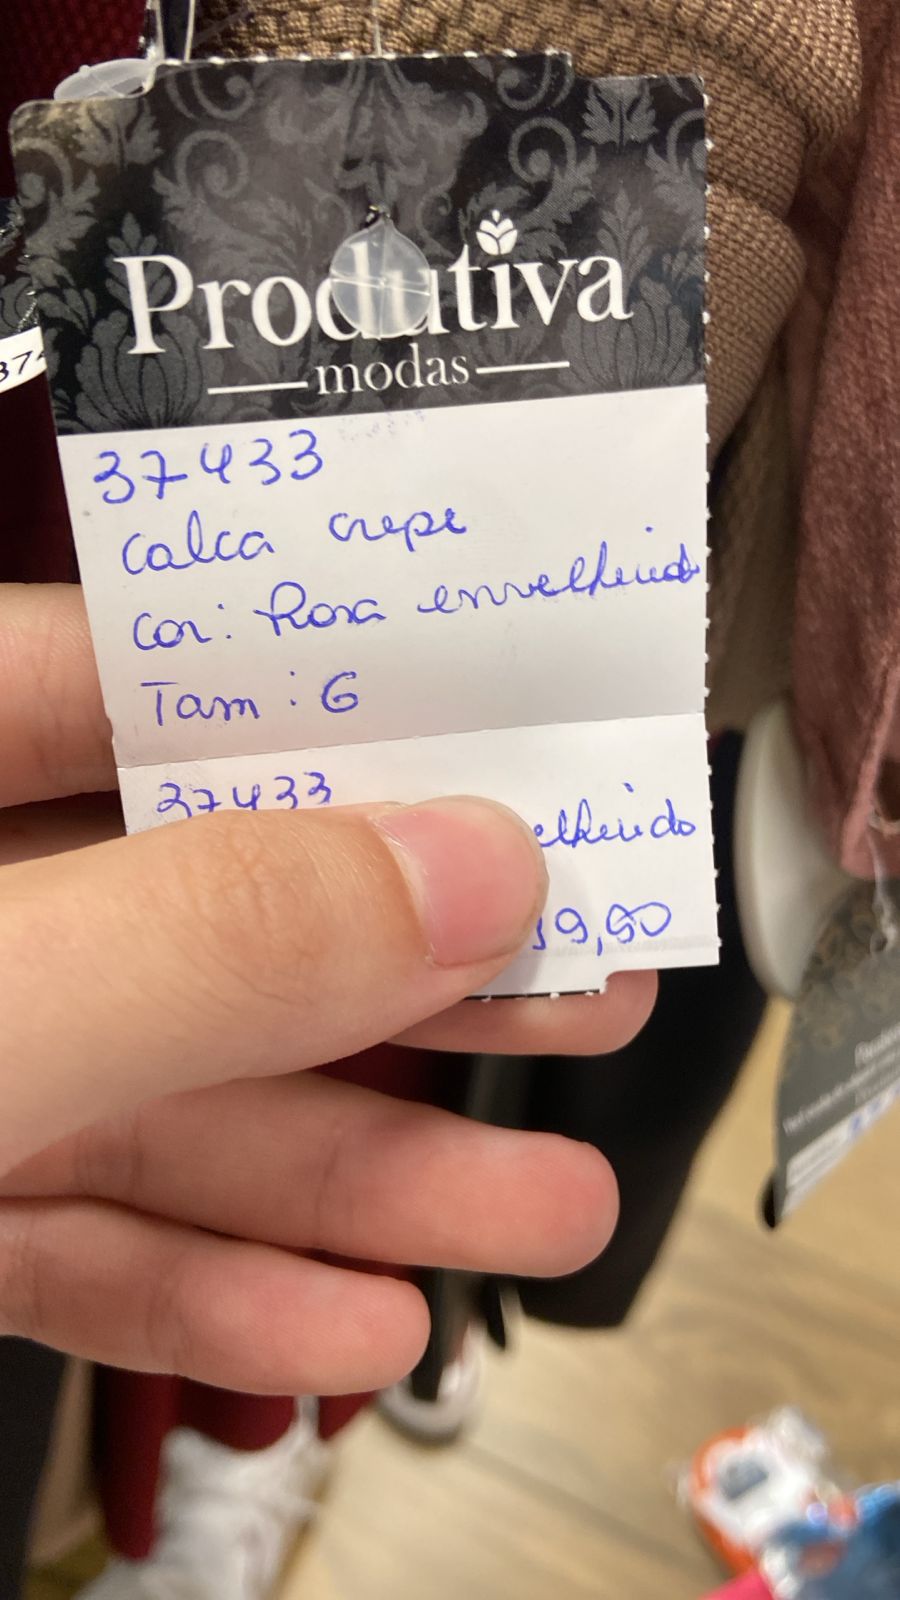 Produtiva
modas
37433
Calca crepe
Cor: Rosa envelhecido
Tam: G
37433
elhecido
19,90
374